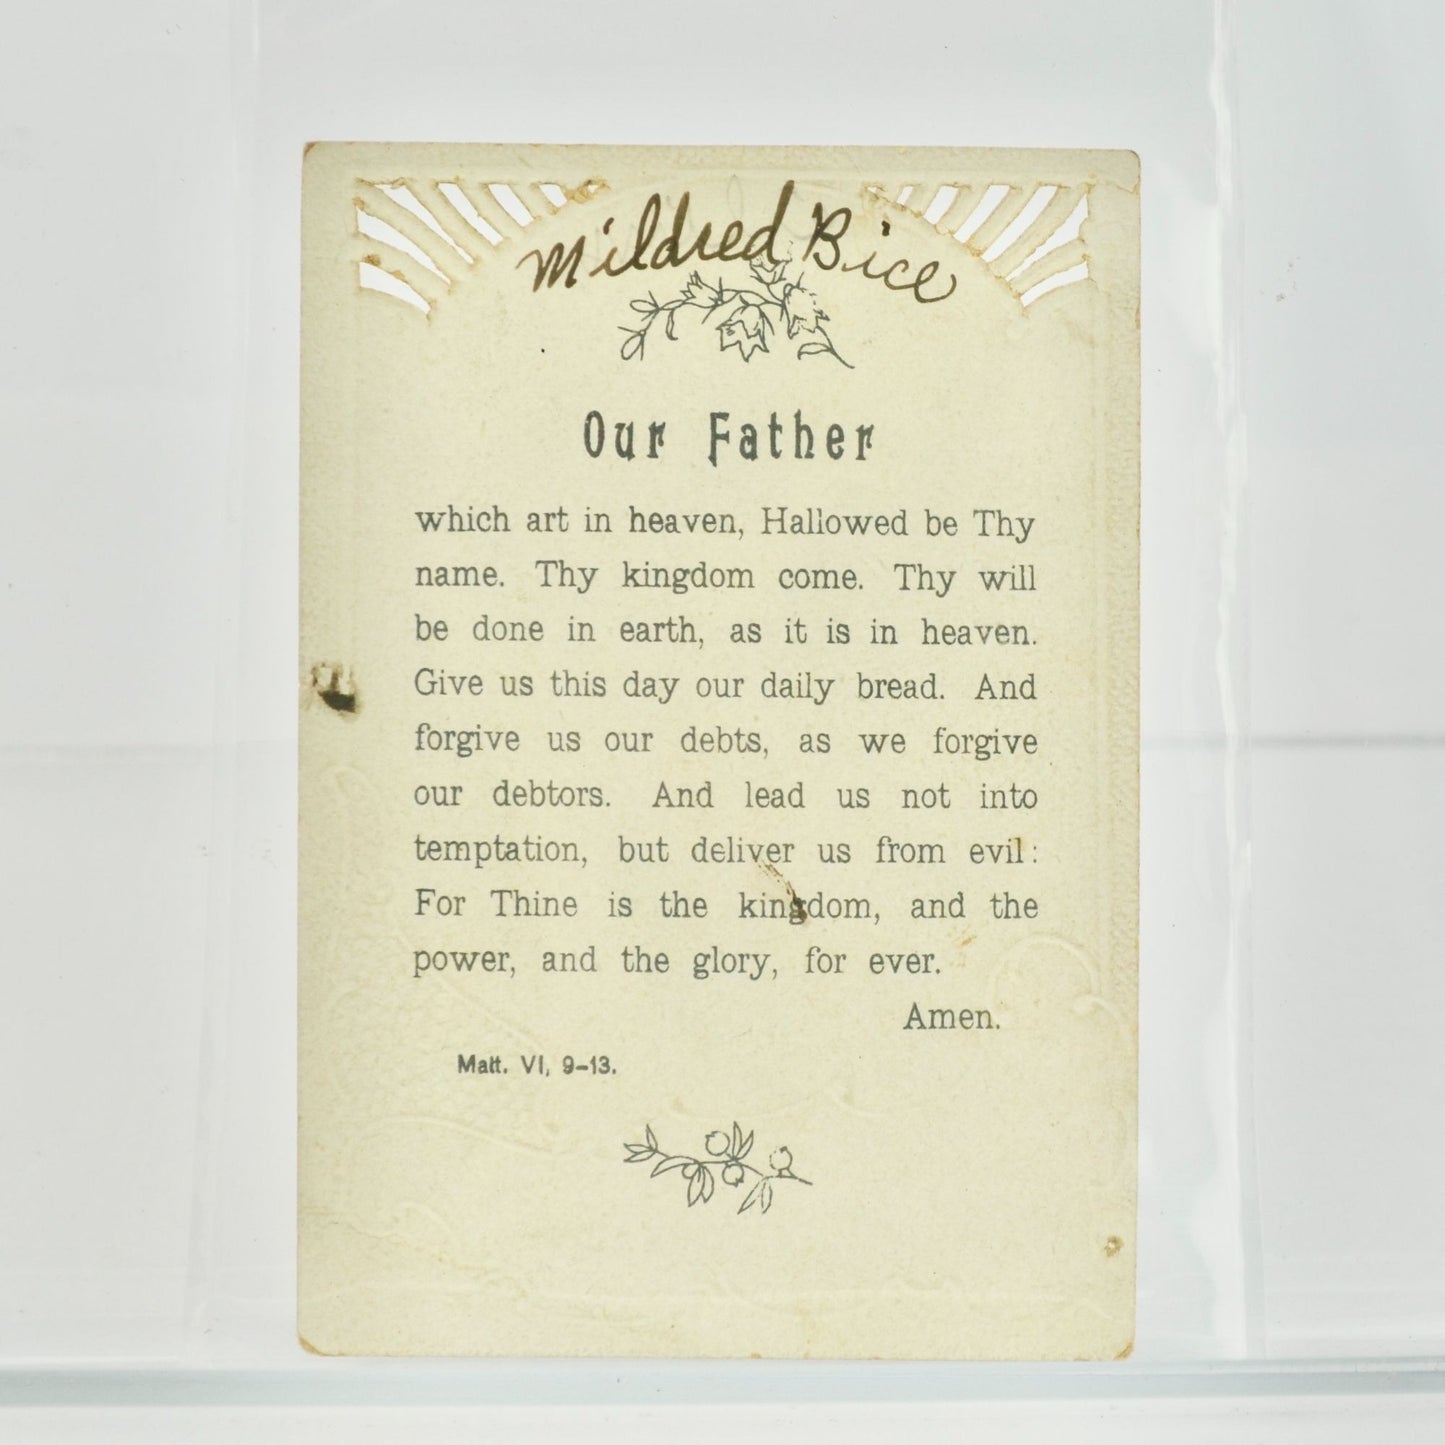 Mildred Bice
Our Father
which art in heaven, Hallowed be Thy
name. Thy kingdom come. Thy will
be done in earth, as it is in heaven.
Give us this day our daily bread. And
forgive us our debts, as we forgive
our debtors. And lead us not into
temptation, but deliver us from evil:
For Thine is the kingdom, and the
power, and the glory, for ever.
Amen.
Matt. VI, 9-13.